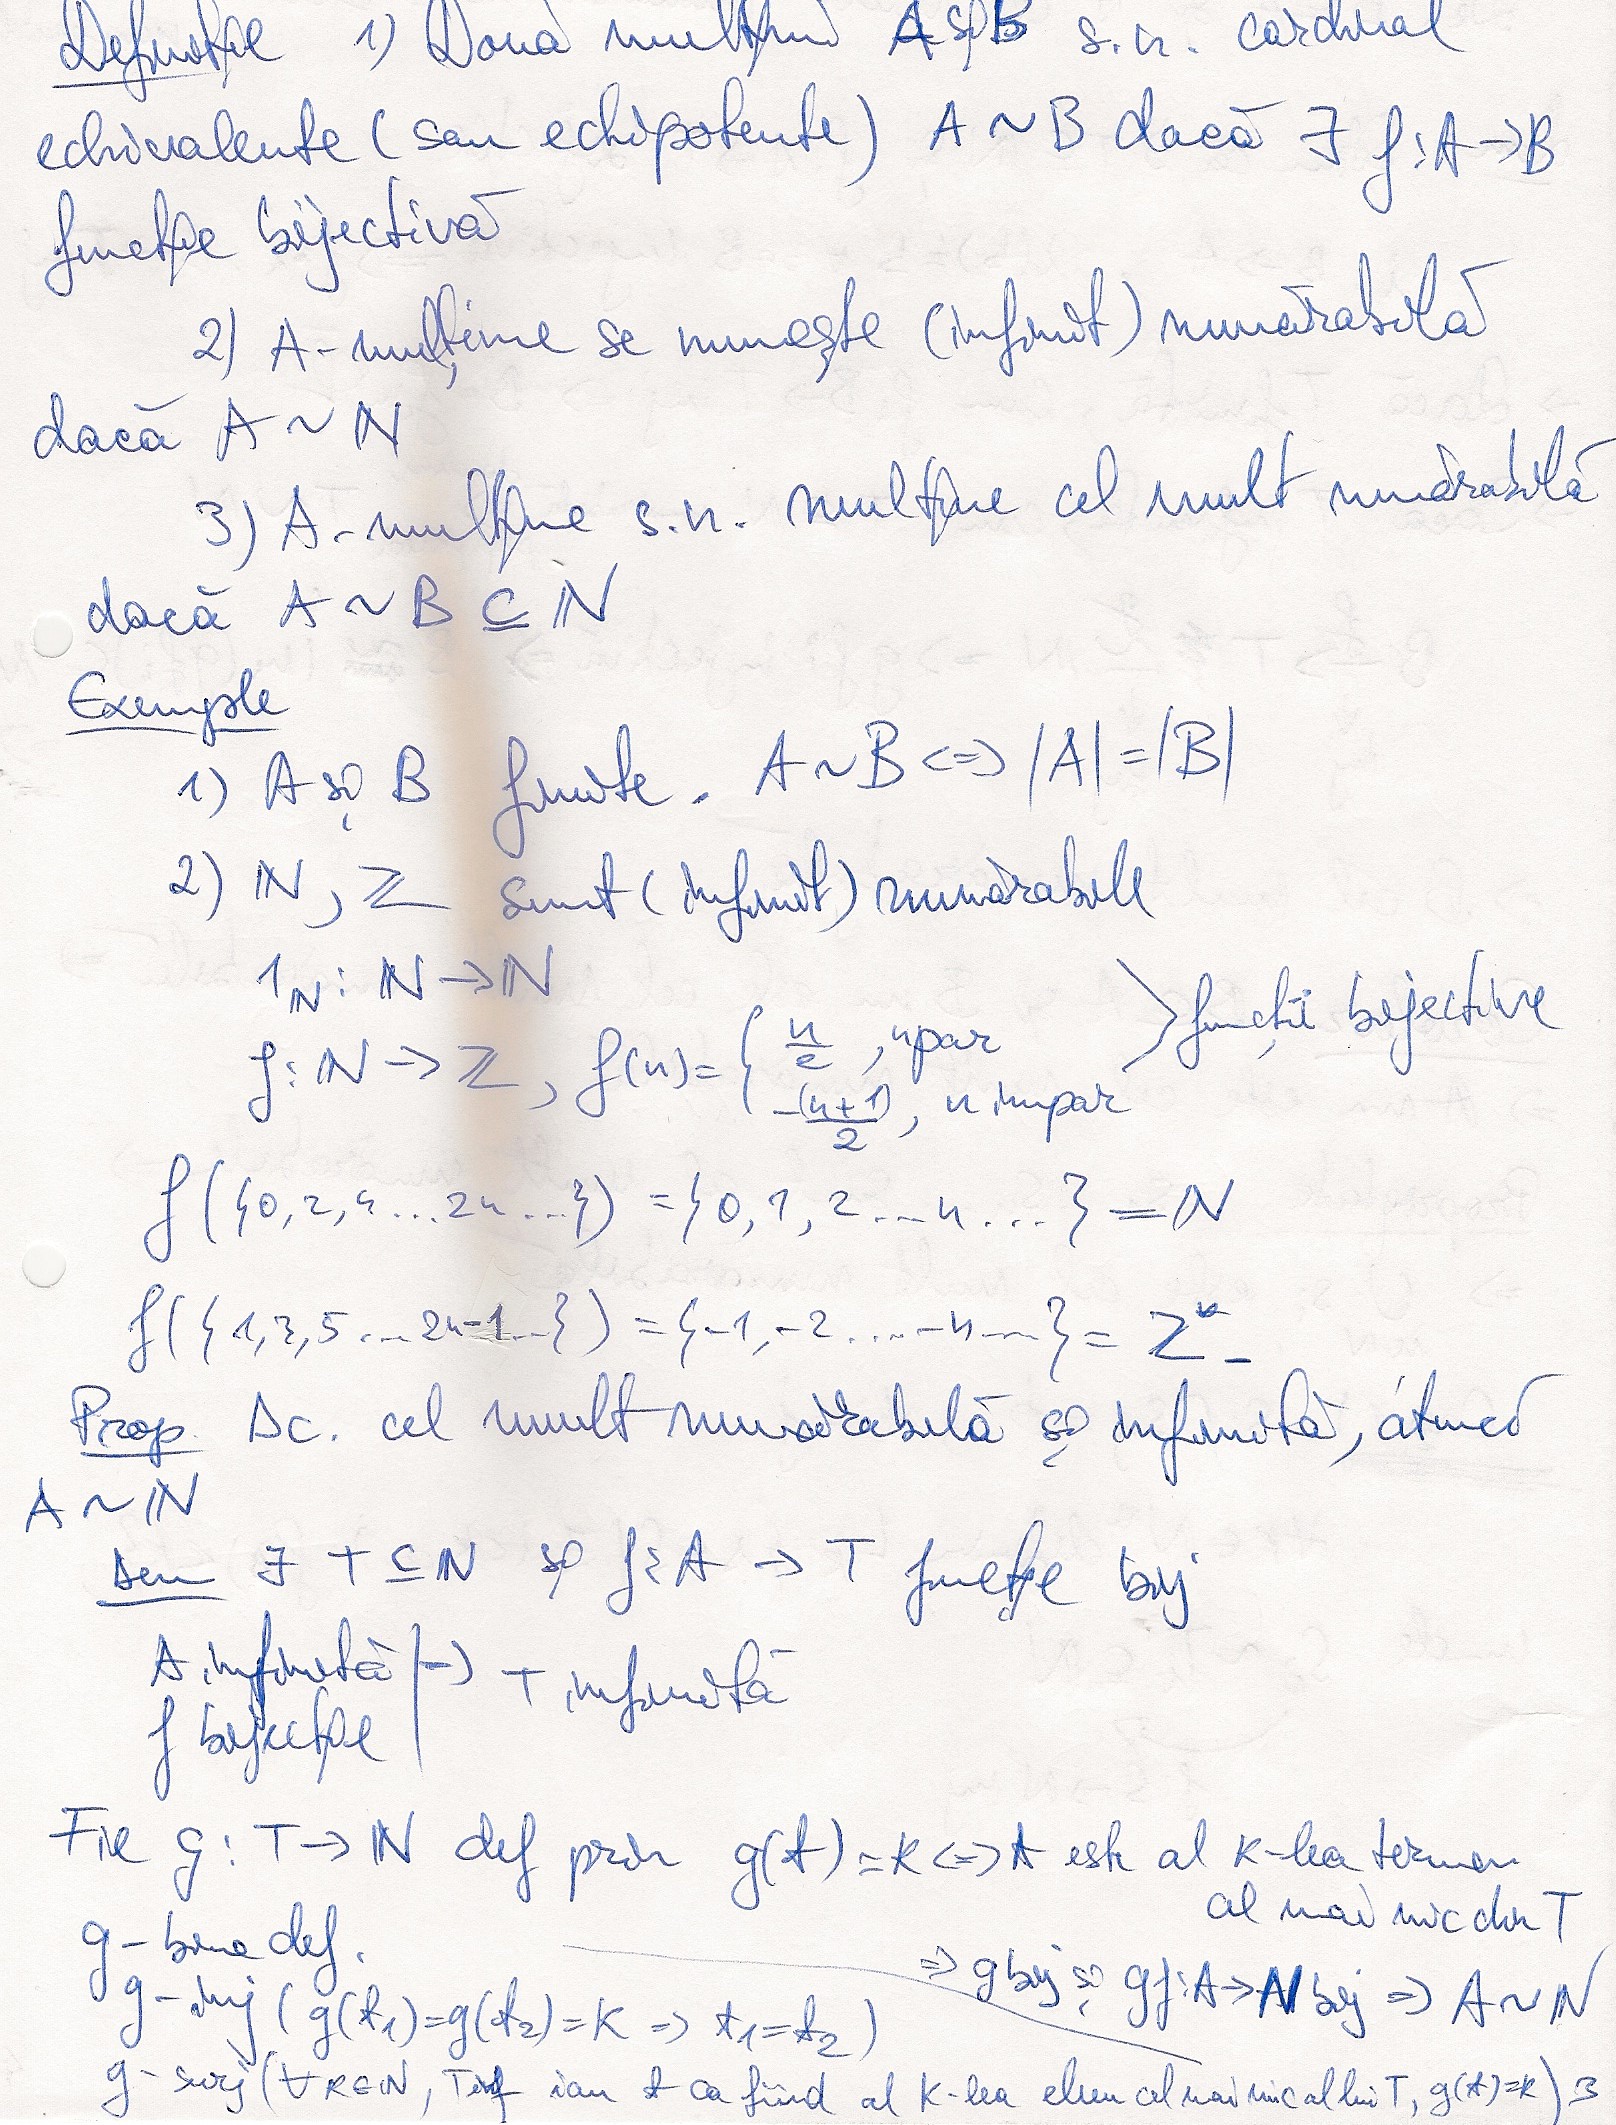 Definiție 1) Două mulțimi A și B s.n. cardinal
echivalente (sau echipotente) A ~ B dacă ∃ f: A → B
funcție bijectivă
2) A - mulțime se numește (infinit) numărabilă
dacă A ~ ℕ
3) A - mulțime s.n. mulțime cel mult numărabilă
dacă A ~ B ⊆ ℕ
Exemple
1) A și B finite. A ~ B <=> |A| = |B|
2) ℕ, ℤ sunt (infinit) numărabile
1_ℕ : ℕ → ℕ
f: ℕ → ℤ, f(n) = { n/2, n par
-(n+1)/2, n impar > funcții bijective
f({0, 2, 4 ... 2n ...}) = {0, 1, 2 ... n ...} = ℕ
f({1, 3, 5 ... 2n-1 ...}) = {-1, -2 ... -n ...} = ℤ*_-
Prop. Dc. cel mult numărabilă și infinită, atunci
A ~ ℕ
Dem ∃ T ⊆ ℕ și f: A → T funcție bij
A infinită | → T infinită
f bijecție
Fie g: T → ℕ def prin g(t) = k <=> t este al k-lea termen
al mai mic din T
g - bine def.
=> g bij și gf: A → ℕ bij => A ~ ℕ
g - inj (g(t₁) = g(t₂) = k => t₁ = t₂)
g - surj (∀ k ∈ ℕ, T inf iau t ca fiind al k-lea elem cel mai mic al lui T, g(t) = k) 3